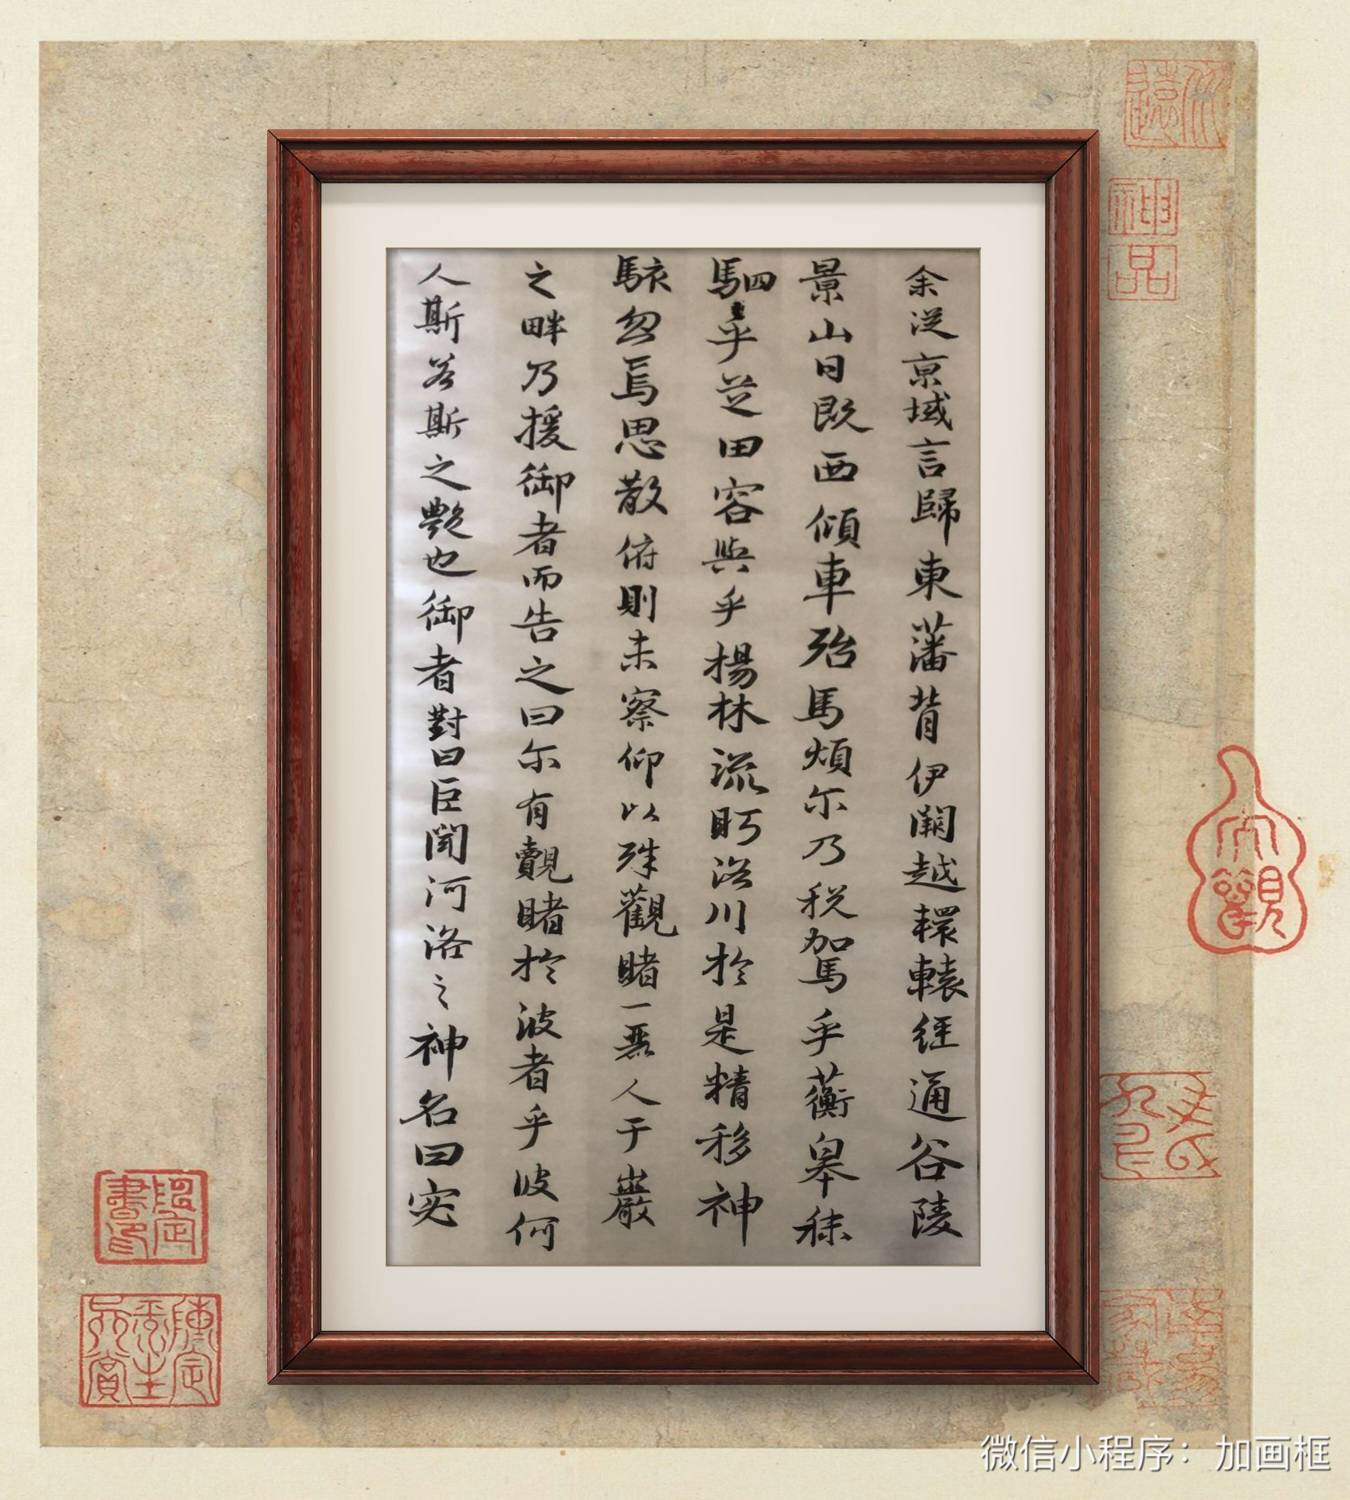 余従京域言歸東藩背伊闕越轘轅經通谷陵
景山日既西傾車殆馬煩尓乃税駕乎蘅皋秣
駟乎芝田容與乎楊林流眄洛川於是精移神
駭忽焉思散俯則未察仰以殊觀睹一麗人于巖
之畔乃援御者而告之曰尓有覿睹於波者乎彼何
人斯若斯之艷也御者對曰臣聞河洛之神名曰宓
神品
大觀
微信小程序：加画框